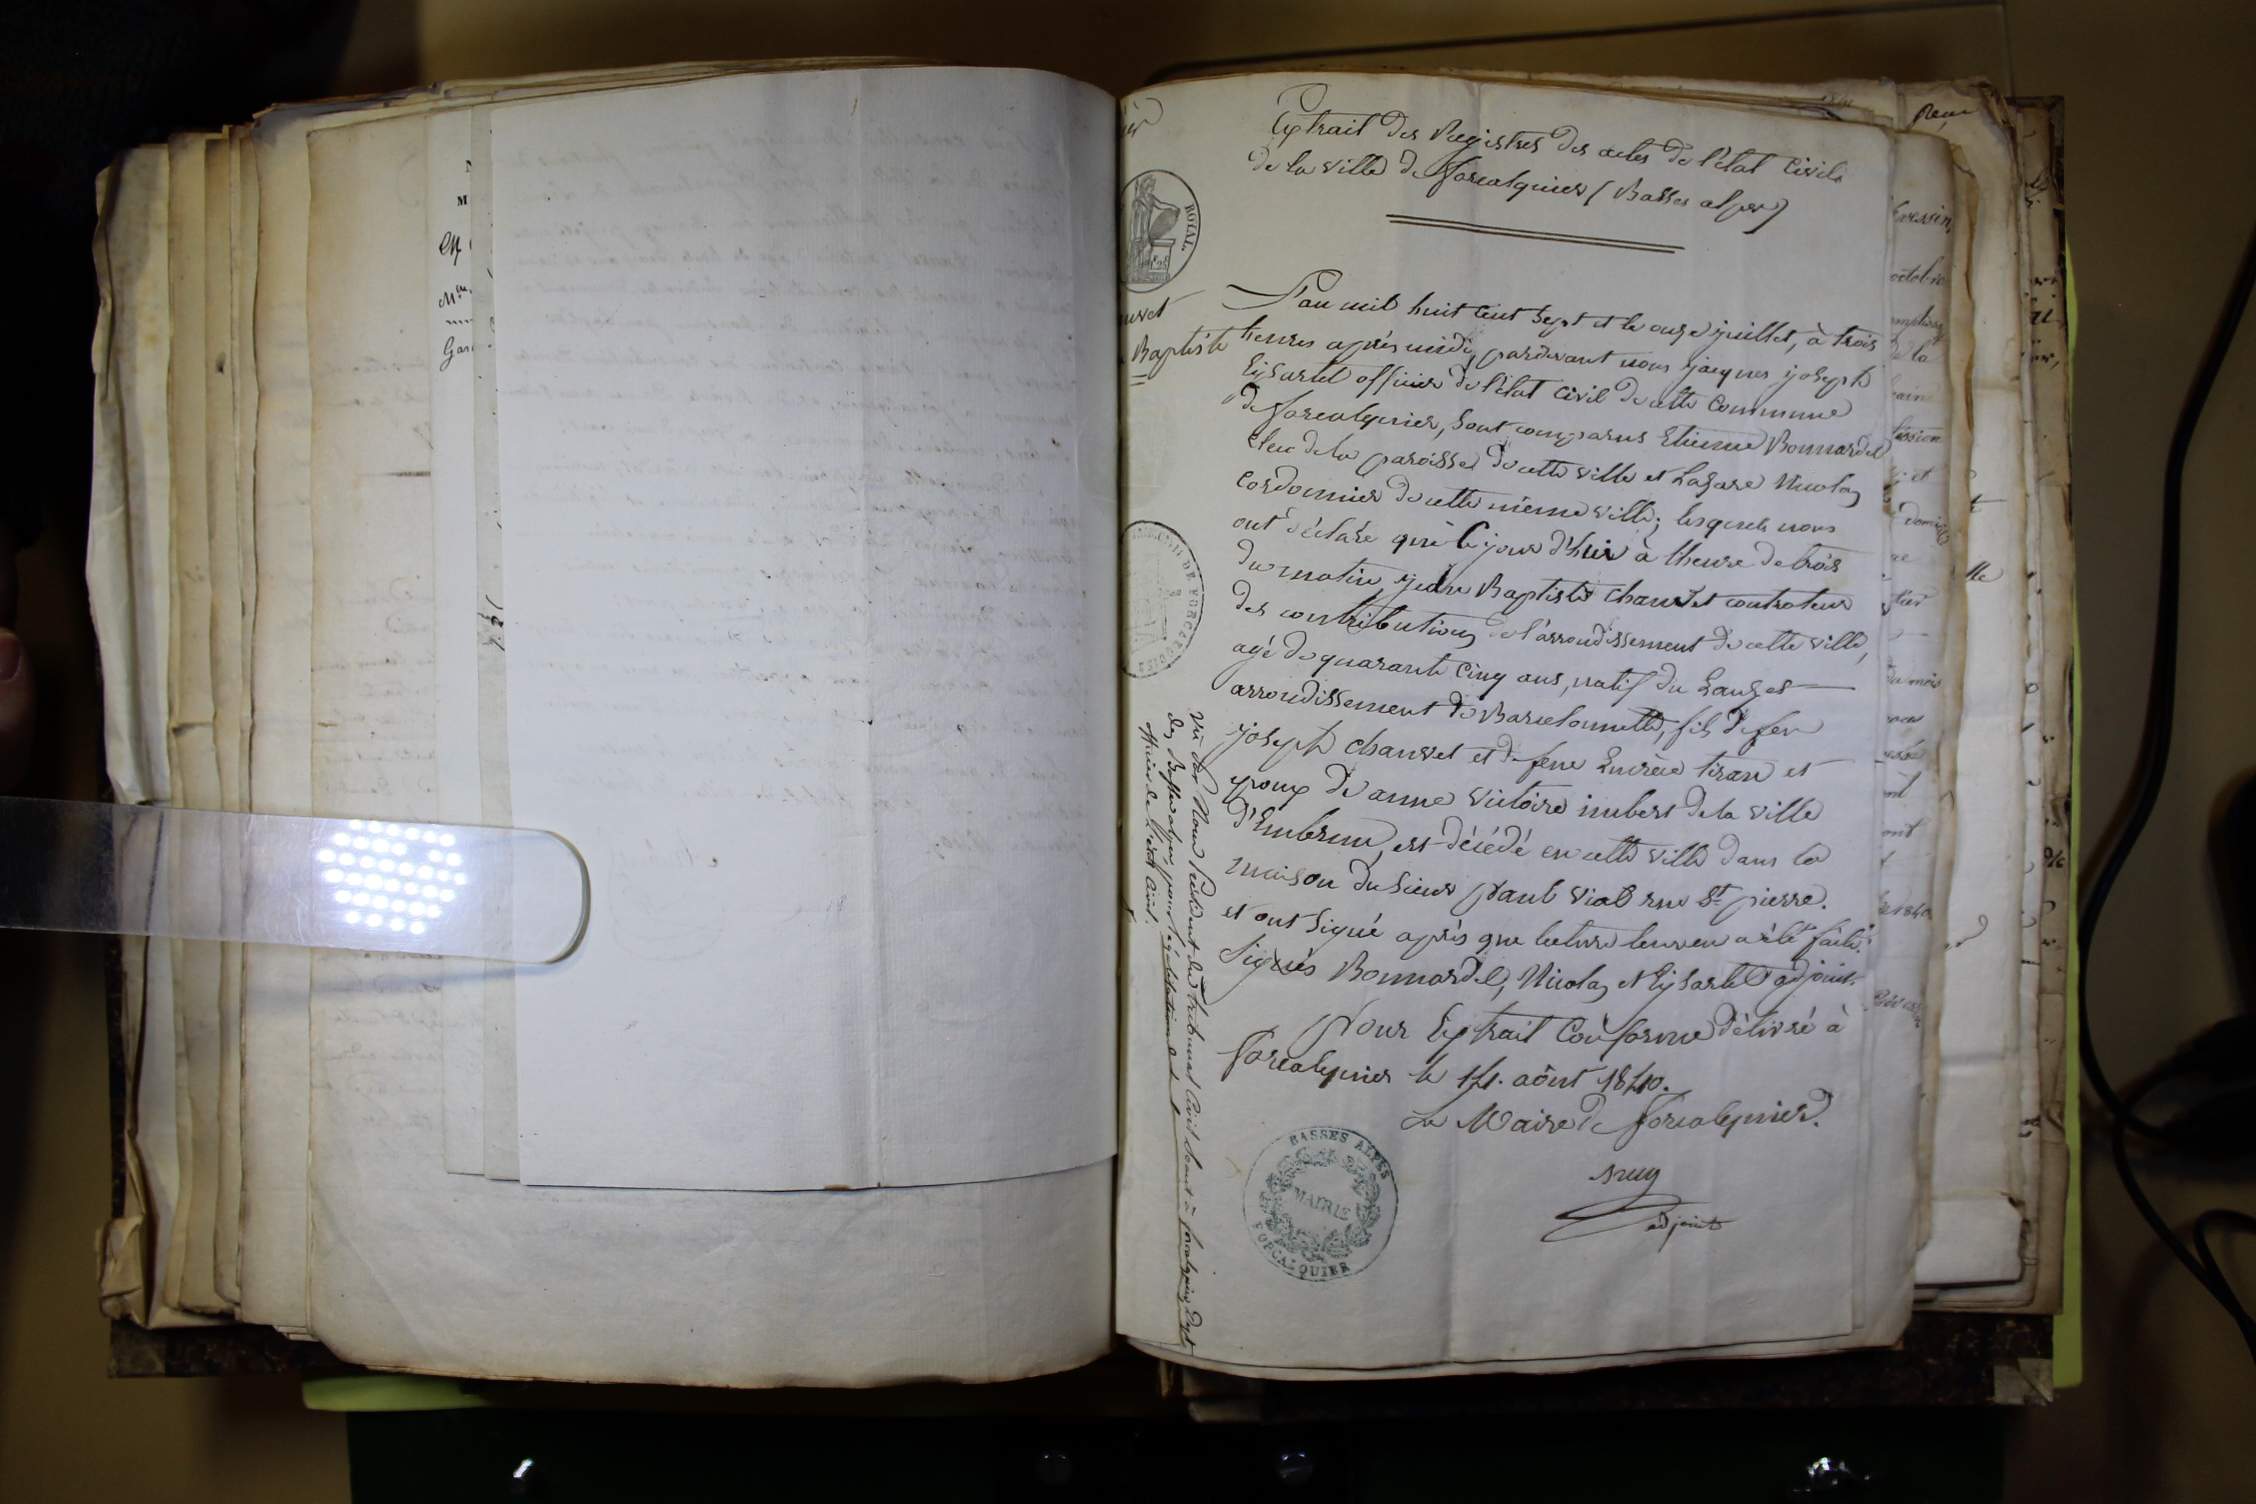 Extrait des Registres des actes de l'état civil
de la ville de forcalquier (Basses alpes)
ROYAL
uvet
Baptiste
L'an mil huit cent sept et le onze juillet, à trois
heures après midi, pardevant nous jacques joseph
Eysartel officier de l'état civil de cette commune
de forcalquier, sont comparus Etienne Bonnardel
clerc de la paroisse de cette ville et Lazare Nicolas
cordonnier de cette même ville; lesquels nous
ont déclaré que ce jour d'hui à l'heure de trois
du matin, jean Baptiste Chauvet controleur
des contributions de l'arrondissement de cette ville,
agé de quarante cinq ans, natif du Lauzet
arrondissement de Barcelonnette, fils de feu
joseph chauvet et de feue Lucrèce tiran et
epoux de anne victoire imbert de la ville
d'Embrun, est décédé en cette ville dans la
maison du sieur paul vial rue St. pierre.
et ont signé après que lecture leur en a été faite.
Signés Bonnardel, Nicolas et Eysartel adjoint.
Pour Extrait Conforme délivré à
forcalquier le 14. août 1840.
Le Maire de forcalquier.
adjoint
BASSES ALPES
MAIRIE
FORCALQUIER
Vu par Nous Président du tribunal Civil séant à forcalquier Dept
des Basses alpes, pour légalisation de la
officier de l'état Civil.
DE FORCALQUIER
M
Mme.
Gar
octobre
de la
et
du mois
1840